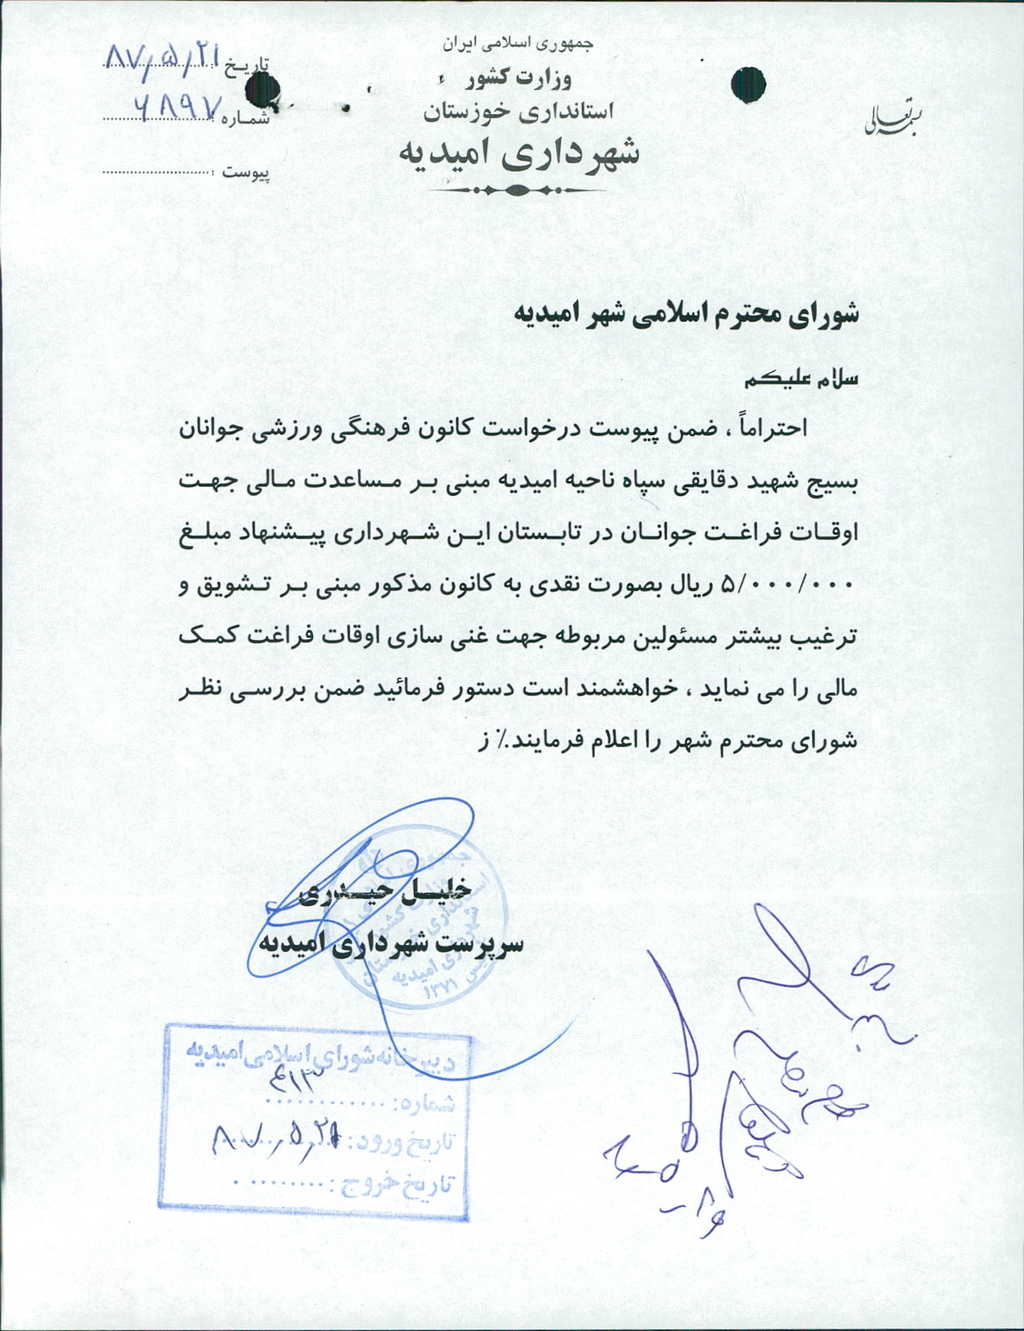 بسمه تعالی
جمهوری اسلامی ایران
وزارت کشور
استانداری خوزستان
شهرداری امیدیه
تاریخ : ۸۷/۵/۲۱
شماره : ۶۸۹۷
پیوست :
شورای محترم اسلامی شهر امیدیه
سلام علیکم
احتراماً ، ضمن پیوست درخواست کانون فرهنگی ورزشی جوانان
بسیج شهید دقایقی سپاه ناحیه امیدیه مبنی بر مساعدت مالی جهت
اوقات فراغت جوانان در تابستان این شهرداری پیشنهاد مبلغ
۵/۰۰۰/۰۰۰ ریال بصورت نقدی به کانون مذکور مبنی بر تشویق و
ترغیب بیشتر مسئولین مربوطه جهت غنی سازی اوقات فراغت کمک
مالی را می نماید ، خواهشمند است دستور فرمائید ضمن بررسی نظر
شورای محترم شهر را اعلام فرمایند.٪ ز
خلیل حیدری
سرپرست شهرداری امیدیه
شهرداری امیدیه
۱۳۷۱
دبیرخانه شورای اسلامی امیدیه
شماره:
تاریخ ورود: ۸۷/۵/۲۱
تاریخ خروج: